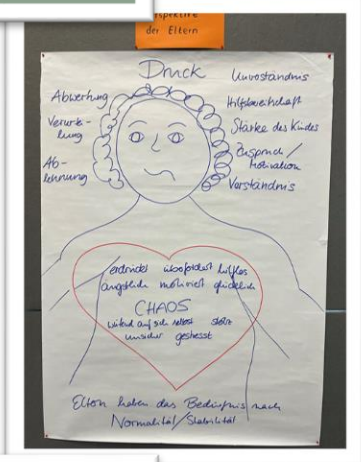 der Eltern
Druck
Abwertung
Ab-
lehnung
Unverständnis
Hilfsbereitschaft
Stärke des Kindes
Zuspruch /
Motivation
Verständnis
erdrückt überfordert hilflos
ängstlich motiviert glücklich
CHAOS
wütend auf sich selbst stolz
unsicher gestresst
Eltern haben das Bedürfnis nach
Normalität/Stabilität